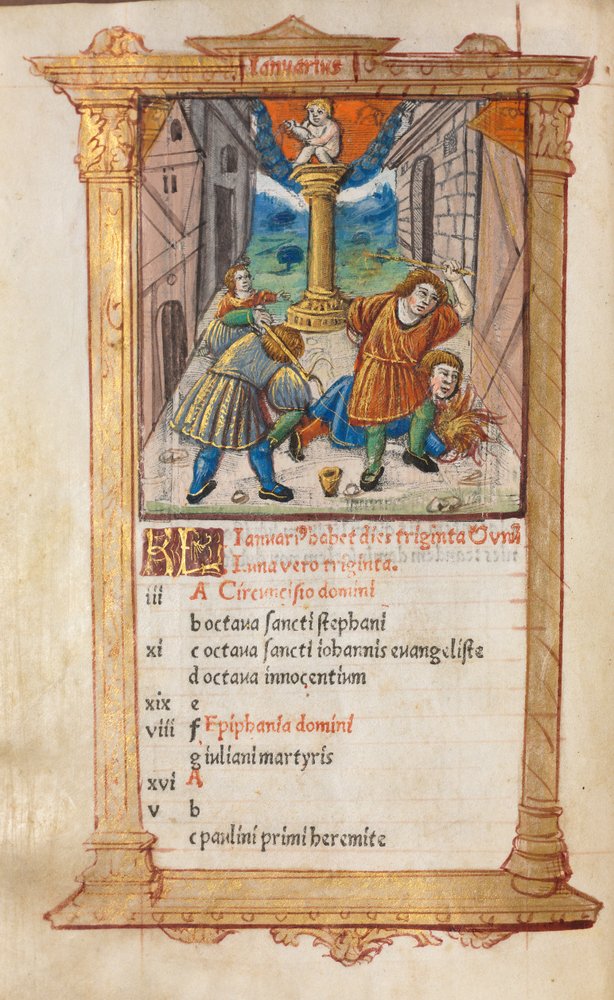 Ianuarius
KL Ianuariꝰ habet dies triginta Vnū
Luna vero triginta.
iii A Circuncisio domini
b octava sancti stephani
xi c octava sancti iohannis evangeliste
d octava innocentium
xix e
viii f Epiphania domini
g iuliani martyris
xvi A
v b
c paulini primi heremite